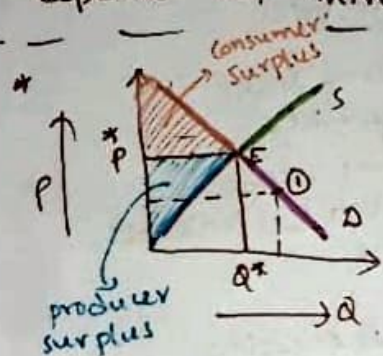 *
consumer
surplus
S
P*
E
P
①
D
Q*
→ Q
producer
surplus